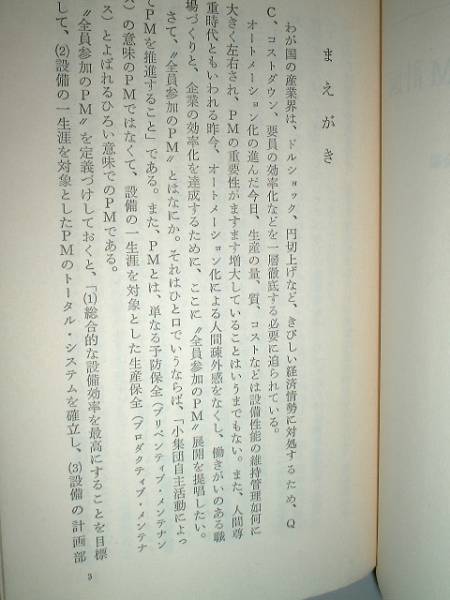 まえがき
わが国の産業界は、ドルショック、円切上げなど、きびしい経済情勢に対処するため、Q
C、コストダウン、要員の効率化などを一層徹底する必要に迫られている。
オートメーション化の進んだ今日、生産の量、質、コストなどは設備性能の維持管理如何に
大きく左右され、PMの重要性がますます増大していることはいうまでもない。また、人間尊
重時代ともいわれる昨今、オートメーション化による人間疎外感をなくし、働きがいのある職
場づくりと、企業の効率化を達成するために、ここに〝全員参加のPM〟展開を提唱したい。
さて、〝全員参加のPM〟とはなにか。それはひと口でいうならば、「小集団自主活動によっ
てPMを推進すること」である。また、PMとは、単なる予防保全（プリベンティブ・メンテナン
ス）の意味のPMではなくて、設備の一生涯を対象とした生産保全（プロダクティブ・メンテナ
ス）とよばれるひろい意味でのPMである。
〝全員参加のPM〟を定義づけしておくと、「(1)総合的な設備効率を最高にすることを目標
して、(2)設備の一生涯を対象としたPMのトータル・システムを確立し、(3)設備の計画部
3